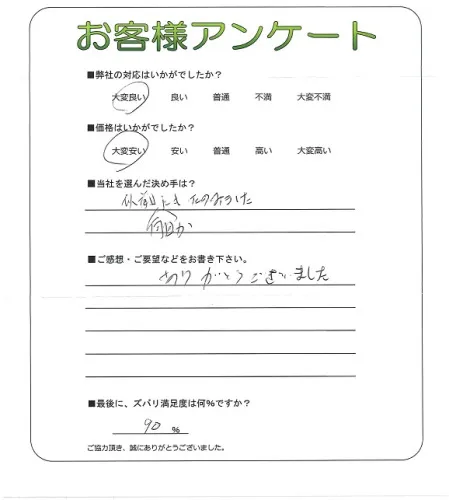 お客様アンケート
■弊社の対応はいかがでしたか？
大変良い 良い 普通 不満 大変不満
■価格はいかがでしたか？
大変安い 安い 普通 高い 大変高い
■当社を選んだ決め手は？
以前にも たのみました
何回か
■ご感想・ご要望などをお書き下さい。
ありがとうございました
■最後に、ズバリ満足度は何％ですか？
90 ％
ご協力頂き、誠にありがとうございました。